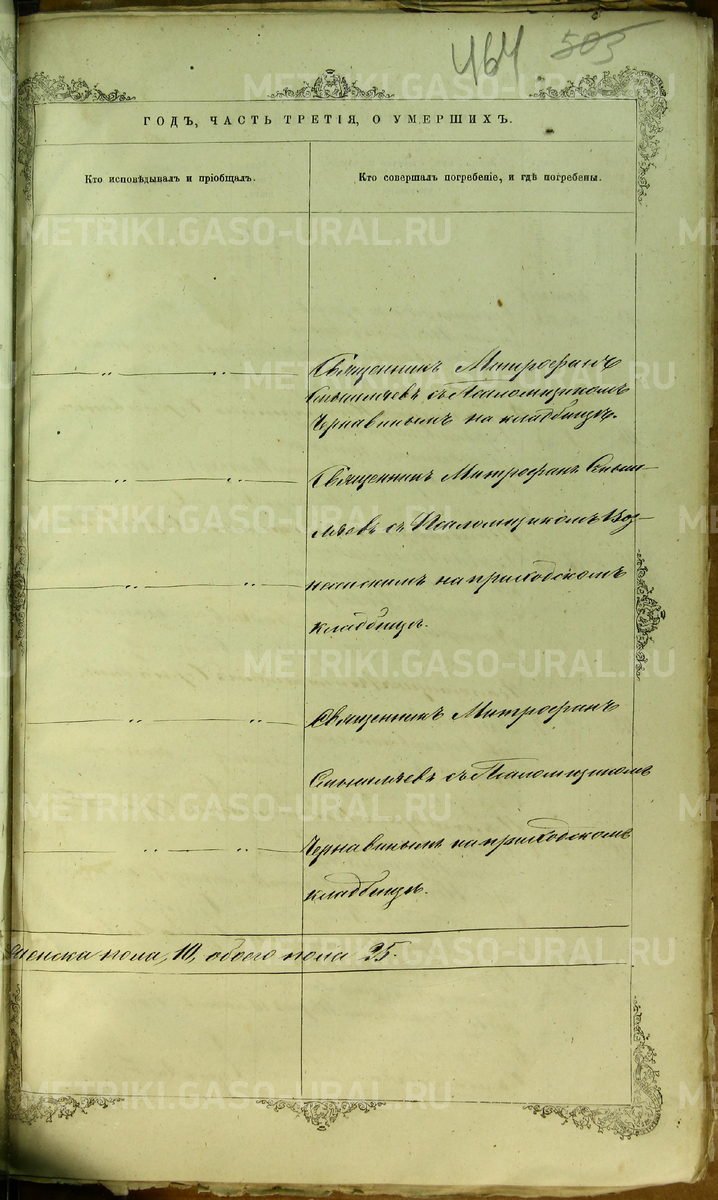 464 505
ГОДЪ, ЧАСТЬ ТРЕТІЯ, О УМЕРШИХЪ.
Кто исповѣдывалъ и пріобщалъ.
Кто совершалъ погребеніе, и гдѣ погребены.
Священникъ Митрофанъ
съ Псаломщикомъ
Чернавинымъ на кладбищѣ.
Священникъ Митрофанъ
съ Псаломщикомъ Воз-
несенскимъ на приходскомъ
кладбищѣ.
Священникъ Митрофанъ
съ Псаломщикомъ
Чернавинымъ на приходскомъ
кладбищѣ.
женска пола, 10, обоего пола 25.
METRIKI.GASO-URAL.RU